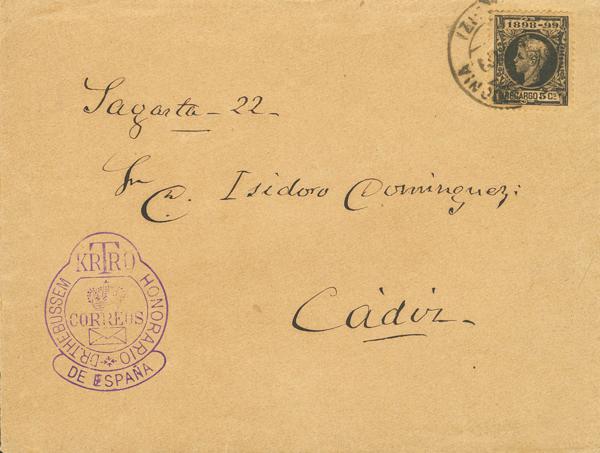 1898-99
RECARGO 5 CS
Sagasta - 22 -
Sr D. Isidoro Dominguez:
Cádiz -
KRTRO
HONORARIO
DR. THEBUSSEM
CORREOS
DE ESPAÑA